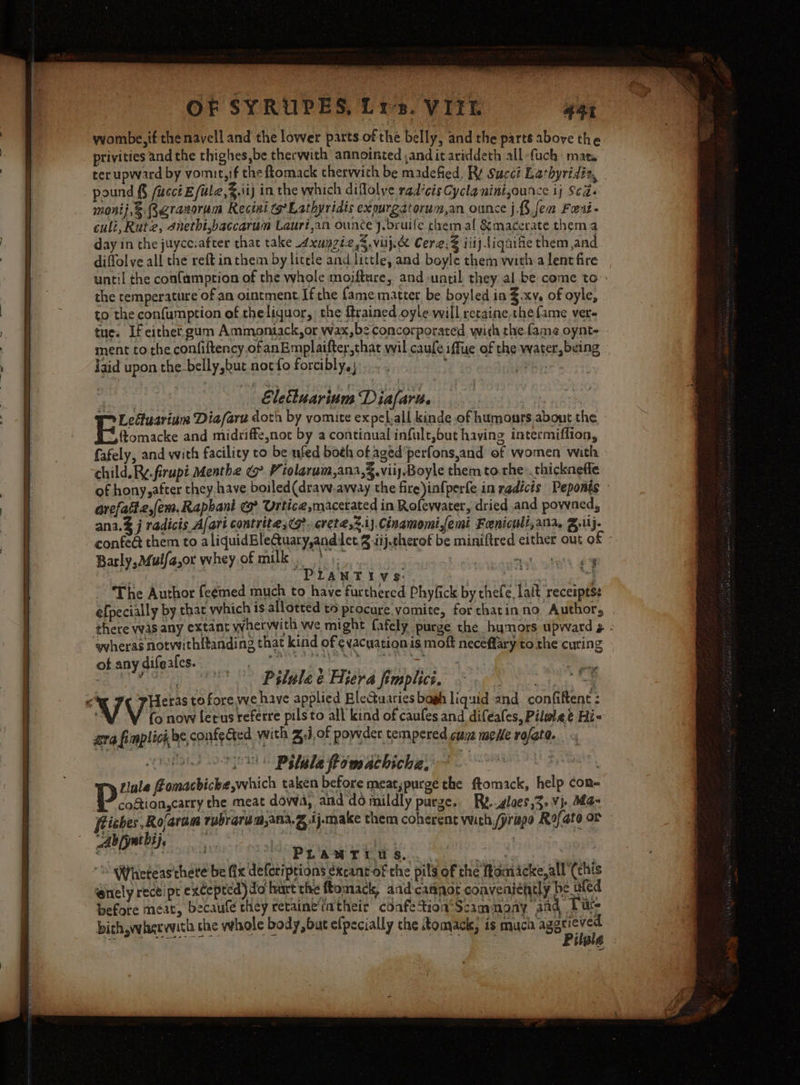 OF SYRUPES, LIB. VIII. 441
wombe,if the navell and the lower parts of the belly, and the parts above the
privities and the thighes,be therwith annointed,and it ariddeth all such mat-
ter upward by vomit,if the stomack therwith be madefied. ℞ Succi Lathyridis,
pound ß succi Esulæ,℥.iij in the which dissolve radicis Cyclamini,ounce ij
monij,℥ ß granorum Recini & Lathyridis expurgatorum,an ounce j.ß sem Fœni-
culi, Rutæ, Anethi,baccarum Lauri,an ounce j.bruise them al & macerate them a
day in the juyce.after that take Axungiæ,℥.viij.& Ceræ,℥ iiij liquifie them,and
dissolve all the rest in them by little and little, and boyle them with a lent fire
until the consumption of the whole moisture, and until they al be come to
the temperature of an ointment. If the same matter be boyled in ℥.xv. of oyle,
to the consumption of the liquor, the strained oyle will retaine the same ver-
tue. If either gum Ammoniack,or wax,be concorporated with the same oynt-
ment to the consistency of an Emplaister,that wil cause issue of the water,being
laid upon the belly,but not so forcibly.
Electuarium Diasaru.
ELectuarium Diasaru doth by vomite expel all kinde of humours about the
stomacke and midriffe,not by a continual insult,but having intermission,
safely, and with facility to be used both of aged persons,and of women with
child.℞.sirupi Menthæ & Violarum,ana,℥.viij.Boyle them to the thicknesse
of hony,after they have boiled(draw away the fire)insperse in radicis Peponis
arefactæ,sem.Raphani & Urticæ,macerated in Rosewater, dried and powned,
ana.℥ j radicis Asari contritæ,& cretæ,℥.ij.Cinamomi,semi Fœniculi,ana, ʒ.iij.
confect them to a liquid Electuary,and let ʒ iij.therof be ministred either out of
Barly,Mulsa,or whey of milk
PLANTIVS.
The Author seemed much to have furthered Physick by these last receipts:
especially by that which is allotted to procure vomite, for that in no Author,
there was any extant wherwith we might safely purge the humors upward;
wheras notwithstanding that kind of evacuation is most necessary to the curing
of any diseases.
Pilulæ è Hiera simplici.
WHeras to fore we have applied Electuaries both liquid and consistent:
so now let us referre pils to all kind of causes and diseases, Pilulæ è Hi-
era simplici,be confected with ʒ.j.of powder tempered cum melle rosato.
Pilulæ stomachichæ.
PIlulæ stomachichæ,which taken before meat,purge the stomack, help con-
coction,carry the meat down, and do mildly purge. ℞. aloes,℥. vj. Ma-
stiches,Rosarum rubrarum,ana.ʒ.ij.make them coherent with syrupo Rosato or
Absynthij.
PLANTIUS.
Whereas there be six descriptions extant of the pils of the stomacke,all (this
onely receipt excepted) do hurt the stomack, and cannot conveniently be used
before meat, because they retaine in their confection Scammony and Tur-
bith,wherwith the whole body,but especially the stomack, is much aggrieved
Pilulæ